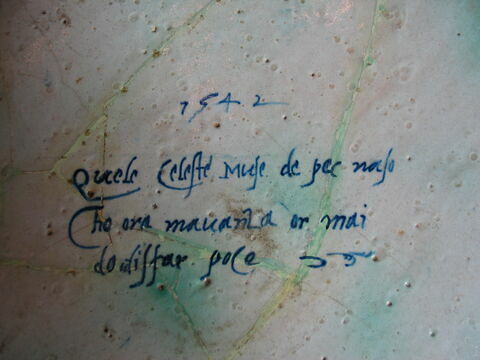 1542
Quele Celeste Muse de pernaso
Che ora mauanta or mai
do disfar poco